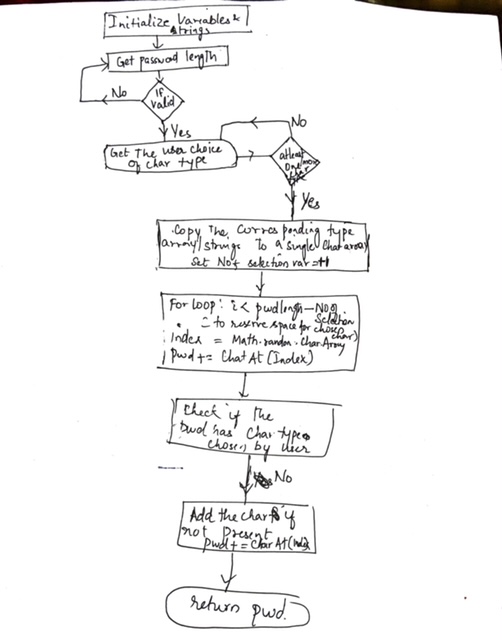 Initialize Variables &
strings
Get password length
No
If
valid
Yes
No
Get The user choice
of char type
atleast
one
Yes
Copy The Corres ponding type
array/strings To a single Char array
Set No of selection var = +1
For loop: i < pwdlengh - No of
Selection
to reserve space for chosen
char)
index = Math.random.CharArray
Pwd += Chat At (Index)
Check if the
pwd has Char type
chosen by user
No
Add the char if
not present
pwd += Char At (Index)
return pwd.